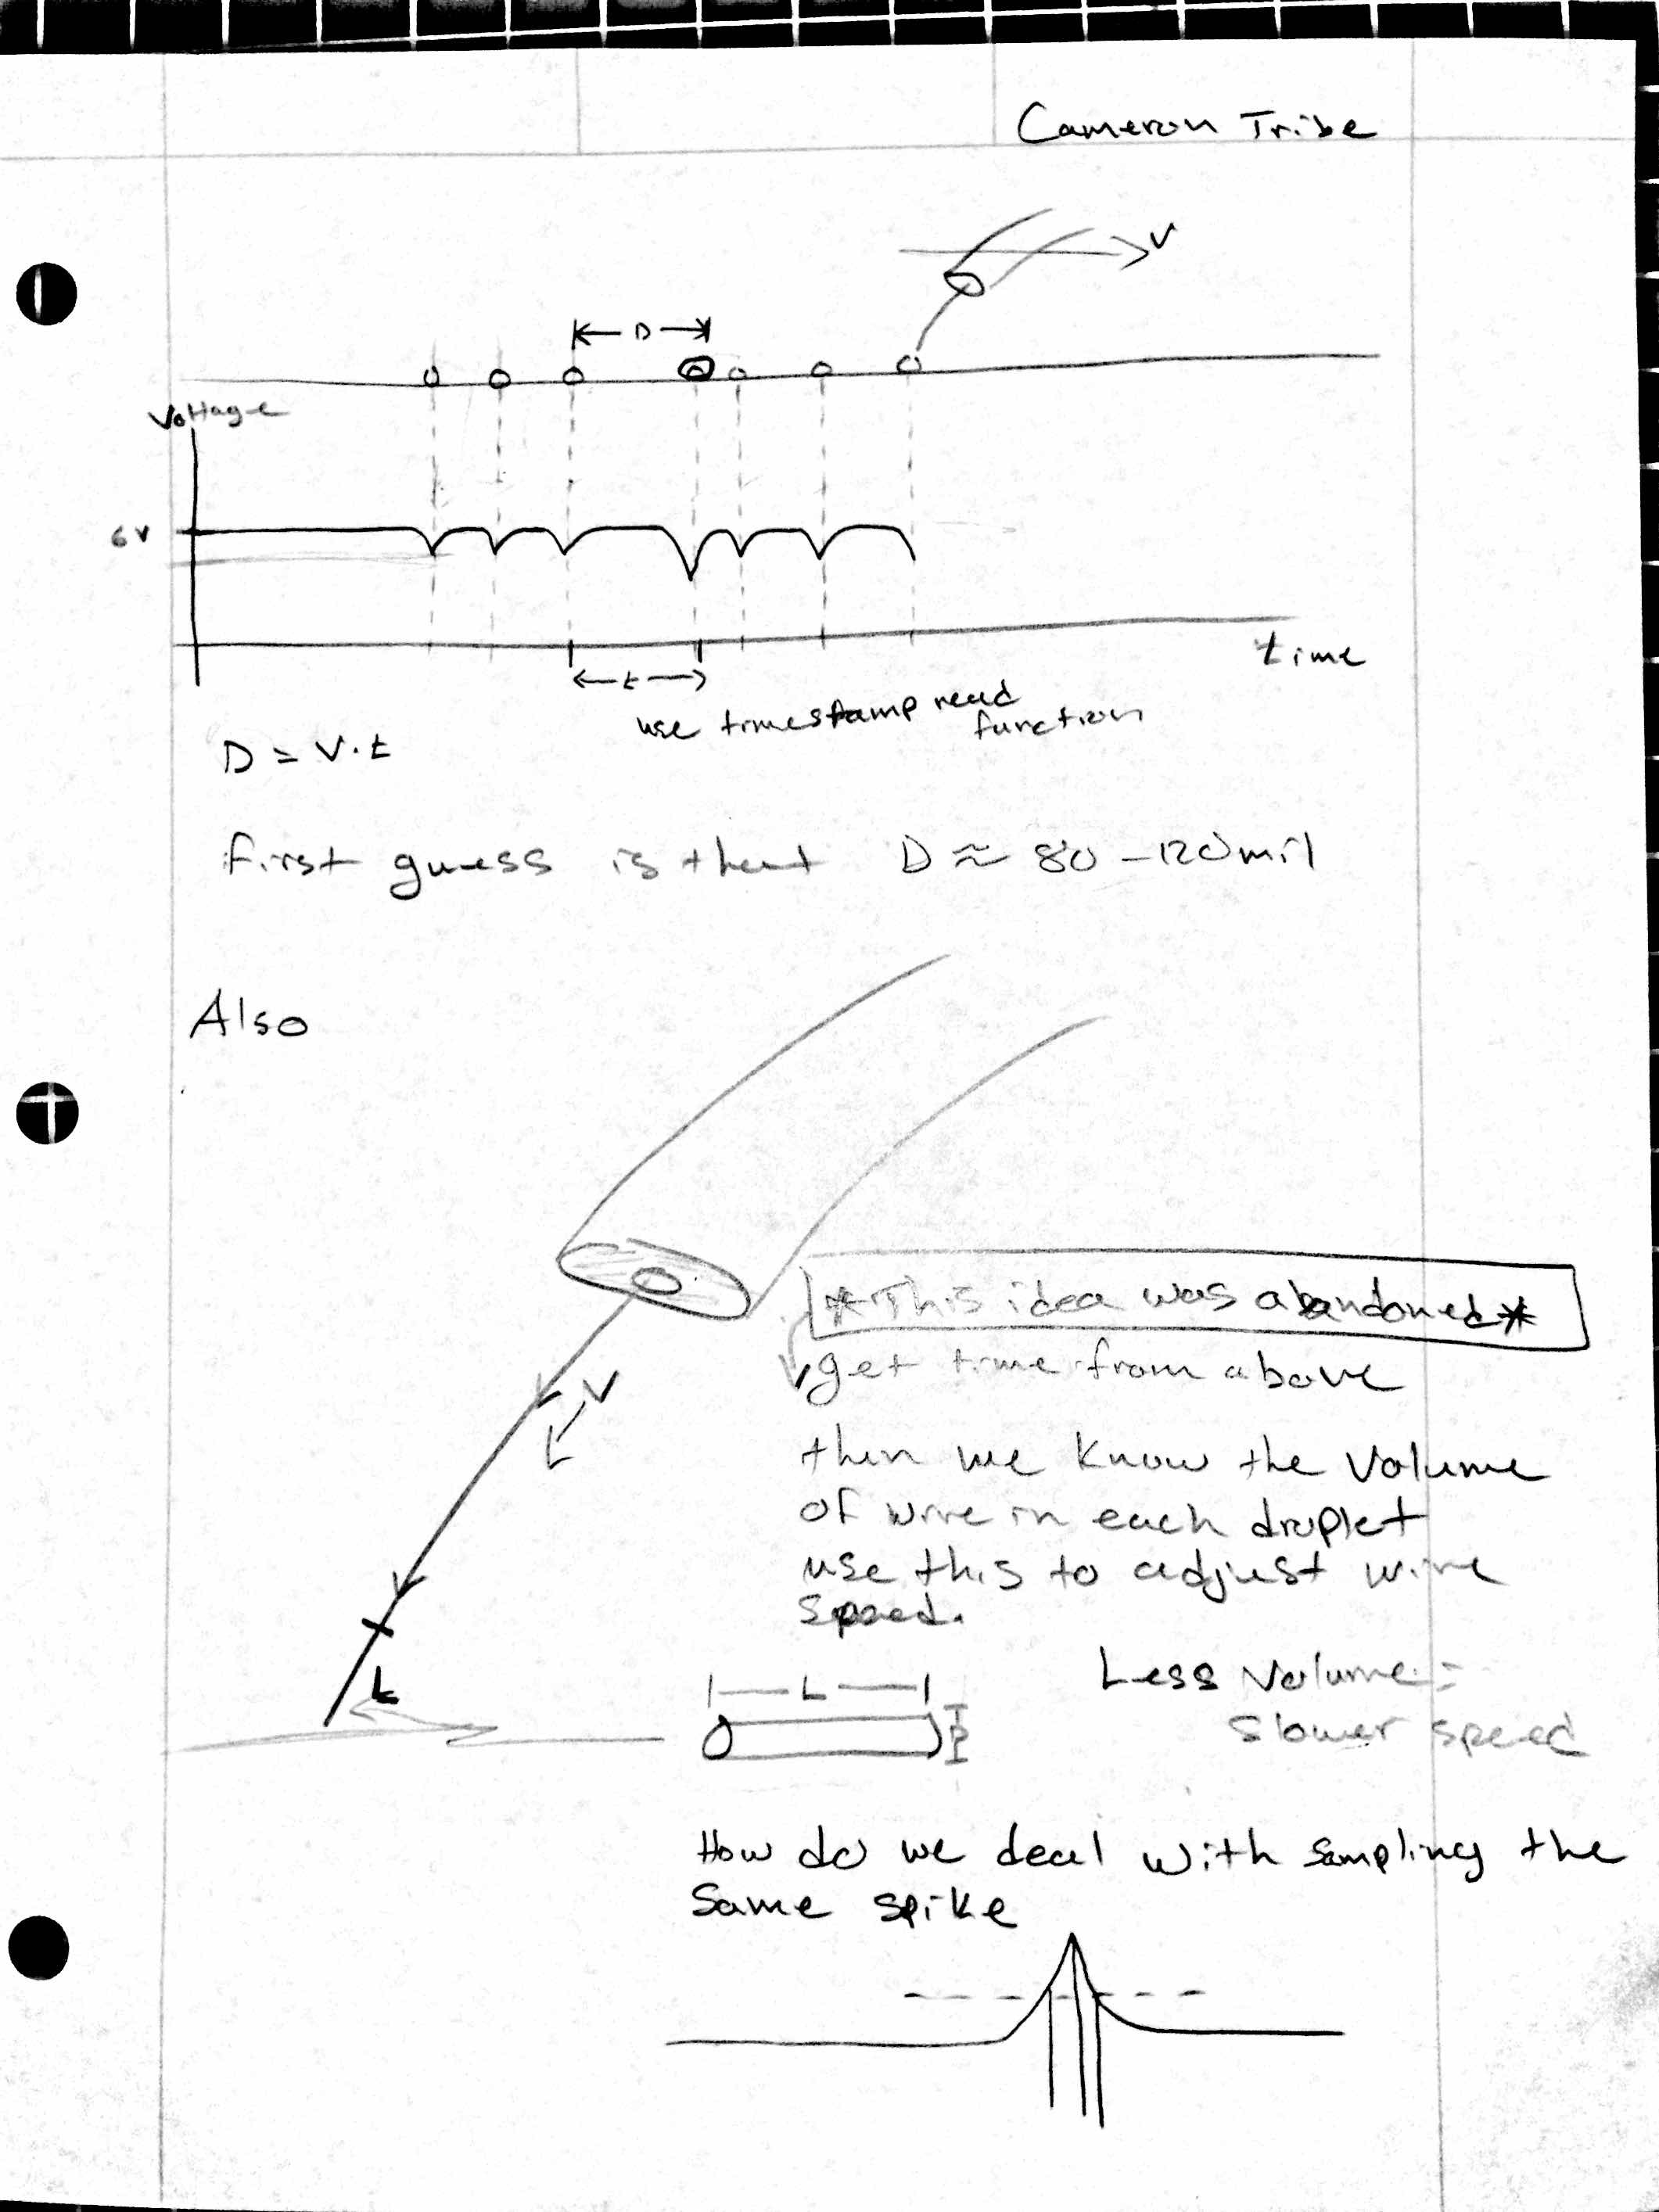 Cameron Tribe
V
D
Voltage
6V
time
t
use timestamp read
function
D = V·t
first guess is that D ≈ 80-120mil
Also
*This idea was abandoned*
get time from above
V
then we know the volume
of wire in each droplet
use this to adjust wire
speed.
L
L
Less Volume =
Slower speed
How do we deal with sampling the
Same spike